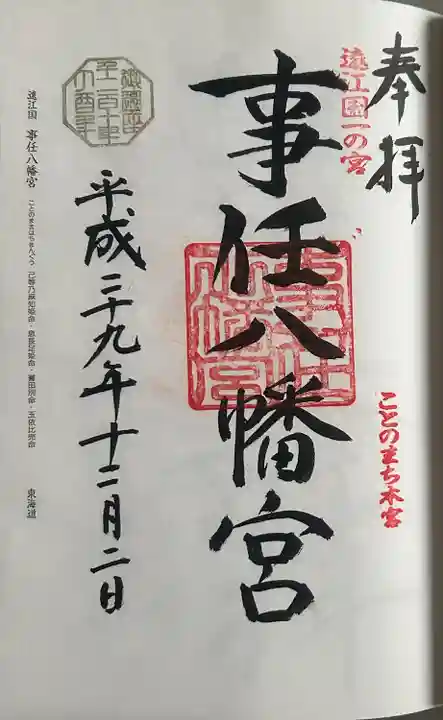 奉拝
遠江國一の宮
ことのまち本宮
事任八幡宮
事任八幡宮
平成二十九年十二月二日
遠江国 事任八幡宮 ことのままはちまんぐう 己等乃麻知比売命・息長帯姫命・誉田別命・玉依比売命 東海道